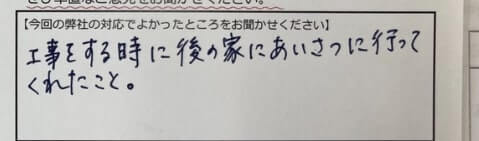 【今回の弊社の対応でよかったところをお聞かせください】
工事をする時に後の家にあいさつに行って
くれたこと。